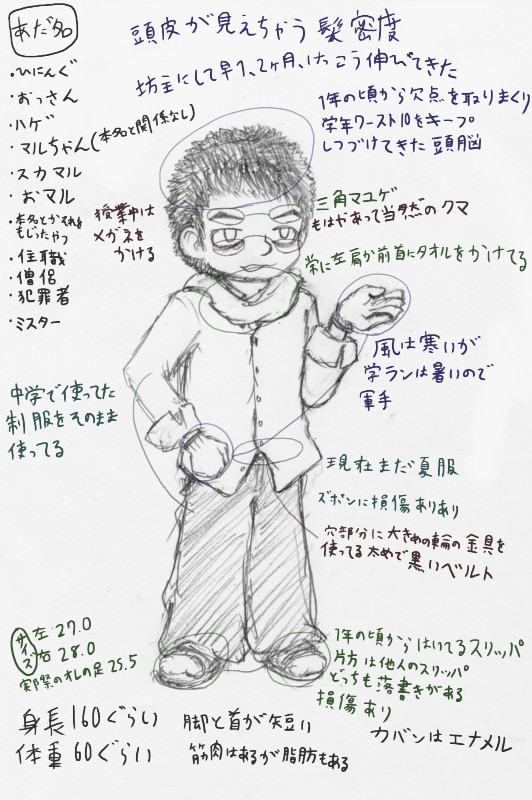 あだ名
・ひにんぐ
・おっさん
・ハゲ
・マルちゃん(本名と関係なし)
・スカマル
・おマル
・本名とかそれを
もじったやつ
・住職
・僧侶
・犯罪者
・ミスター
頭皮が見えちゃう髪密度
坊主にして早1、2ヶ月、けっこう伸びてきた
1年の頃から欠点を取りまくり
学年ワースト10をキープ
しつづけてきた頭脳
授業中は
メガネを
かける
三角マユゲ
もはやあって当然のクマ
常に左肩か前首にタオルをかけてる
風は寒いが
学ランは暑いので
軍手
中学で使ってた
制服をそのまま
使ってる
現在まだ夏服
ズボンに損傷ありあり
穴部分に大きめの輪の金具を
使ってる太めで黒いベルト
サイズ
左:27.0
右:28.0
実際のオレの足25.5
1年の頃からはいてるスリッパ
片方は他人のスリッパ
どっちも落書きがある
損傷あり
身長160ぐらい
体重60ぐらい
脚と首が短い
筋肉はあるが脂肪もある
カバンはエナメル